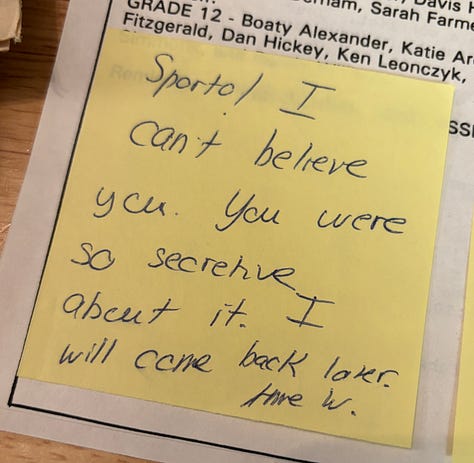 Davis H
Sarah Farme
GRADE 12 - Boaty Alexander, Katie Ar
Fitzgerald, Dan Hickey, Ken Leonczyk,
Sporto! I
can't believe
you. You were
so secretive
about it. I
will come back later.
W.